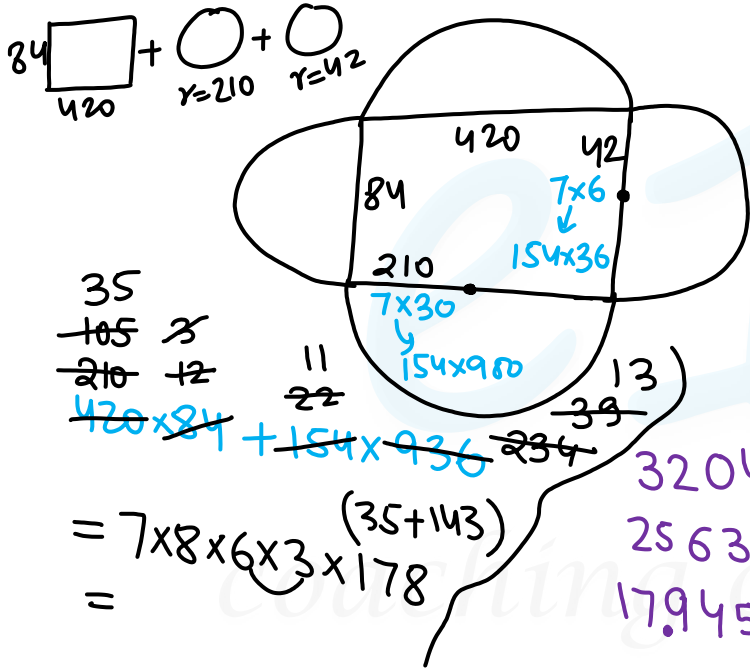 84 + +
420 r=210 r=42
420 42
84 7×6
154×36
210
7×30
154×980
35
105 3
210 12
11
22
13
39
420×84 + 154×936 234
3204
(35+143)
2563
= 7×8×6×3×178
17.945
=
coaching